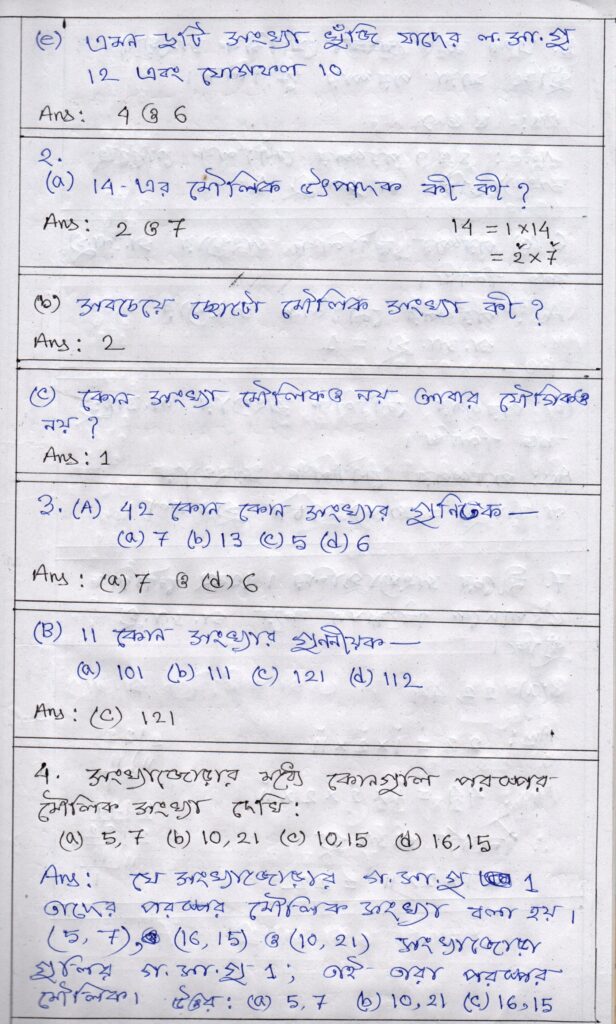 (e) এমন দুটি সংখ্যা খুঁজি যাদের ল.সা.গু
12 এবং যোগফল 10
Ans: 4 ও 6
২.
(a) 14-এর মৌলিক উৎপাদক কী কী ?
Ans: 2 ও 7
14 = 1×14
= 2×7
(b) সবচেয়ে ছোটো মৌলিক সংখ্যা কী ?
Ans: 2
(c) কোন সংখ্যা মৌলিকও নয় আবার যৌগিকও
নয় ?
Ans: 1
3. (A) 42 কোন কোন সংখ্যার গুনিতক —
(a) 7 (b) 13 (c) 5 (d) 6
Ans: (a) 7 ও (d) 6
(B) 11 কোন সংখ্যার গুননীয়ক —
(a) 101 (b) 111 (c) 121 (d) 112
Ans: (c) 121
4. সংখ্যাজোড়ার মধ্যে কোনগুলি পরস্পর
মৌলিক সংখ্যা দেখি:
(a) 5,7 (b) 10,21 (c) 10,15 (d) 16,15
Ans: যে সংখ্যাজোড়ার গ.সা.গু 1
তাদের পরস্পর মৌলিক সংখ্যা বলা হয়।
(5, 7), (16,15) ও (10, 21) সংখ্যাজোড়া
গুলির গ.সা.গু 1; তাই তারা পরস্পর
মৌলিক। উত্তর: (a) 5,7 (b) 10,21 (c) 16,15